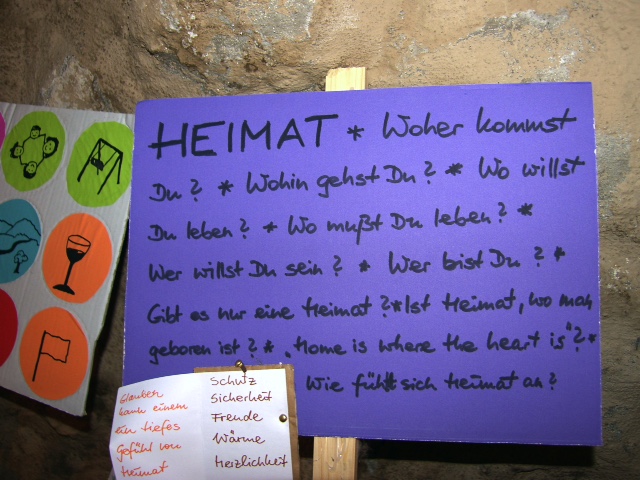 HEIMAT * Woher kommst
Du? * Wohin gehst Du? * Wo willst
Du leben? * Wo mußt Du leben? *
Wer willst Du sein? * Wer bist Du? *
Gibt es nur eine Heimat? * Ist Heimat, wo man
geboren ist? * „Home is where the heart is"? *
Wie fühlt sich Heimat an?
Glauben
kann einem
ein tiefes
Gefühl von
Heimat
Schutz
Sicherheit
Freude
Wärme
Herzlichkeit